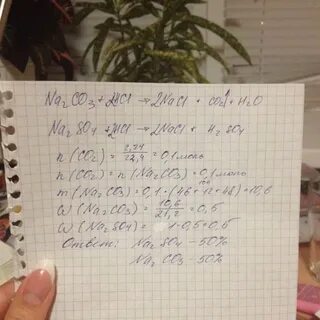 Na₂CO₃ + 2HCl → 2NaCl + CO₂↑ + H₂O
Na₂SO₄ + 2HCl → 2NaCl + H₂SO₄
n(CO₂) = 2,24/22,4 = 0,1 моль
n(CO₂) = n(Na₂CO₃) = 0,1 моль
m(Na₂CO₃) = 0,1 · (46 + 12 + 48) = 10,6
ω(Na₂CO₃) = 10,6/21,2 = 0,5
ω(Na₂SO₄) = 1-0,5=0,5
Ответ: Na₂SO₄ - 50%
Na₂CO₃ - 50%